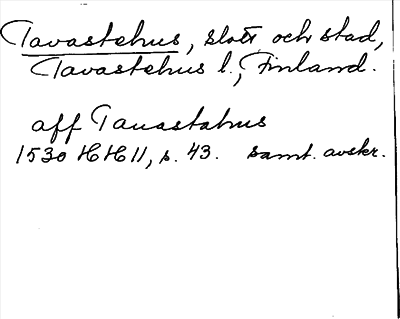 Tavastehus, slott och stad,
Tavastehus l., Finland.
aff Tauastahus
1530 HH 11, s. 43. samt. avskr.